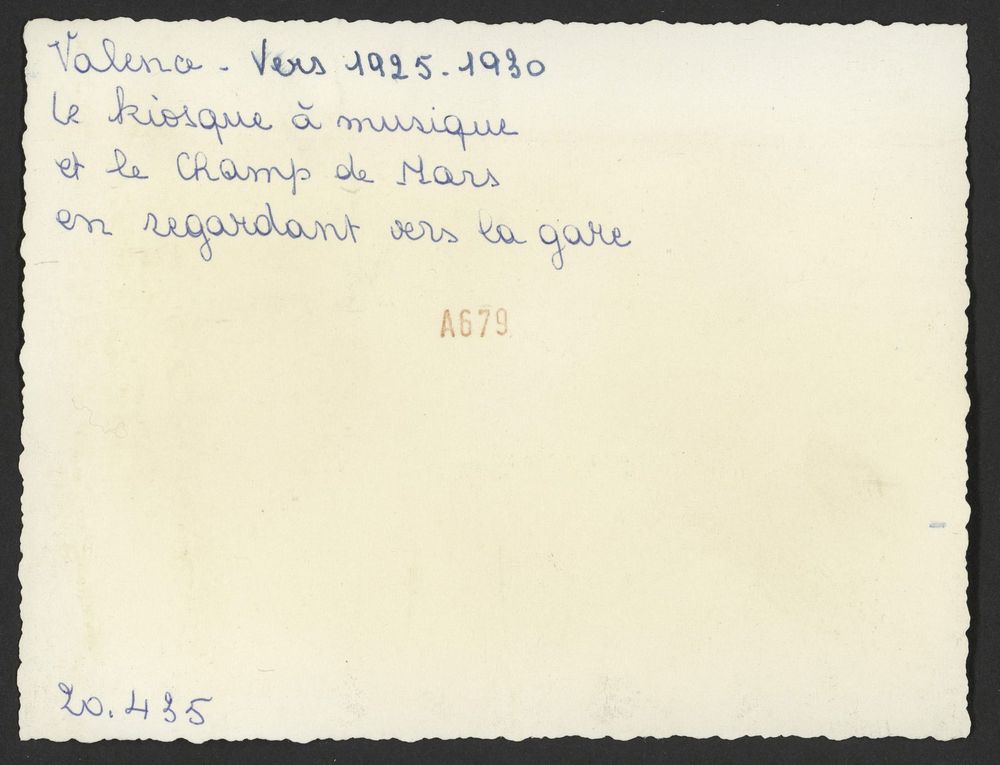 Valence - Vers 1925-1930
le kiosque à musique
et le Champ de Mars
en regardant vers la gare
A679
20.435